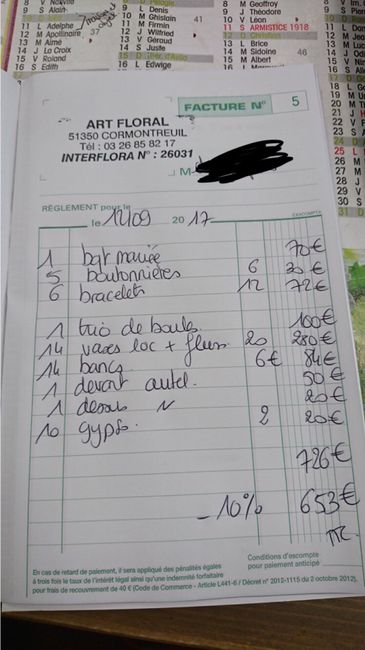 8 V Nouville
9 S Alain
11 L Adelphe
12 M Apollinaire 37
13 M Aimé
14 J La Croix
15 V Roland
16 S Edith
9 L Denis
10 M Ghislain 41
11 M Firmin
12 J Wilfried
13 V Géraud
14 S Juste
16 L Edwige
8 M Geoffroy
9 J Théodore
10 V Léon
11 S ARMISTICE 1918
13 L Brice
14 M Sidoine 46
15 M Albert
FACTURE N° 5
ART FLORAL
51350 CORMONTREUIL
Tél : 03 26 85 82 17
INTERFLORA N° : 26031
M
RÈGLEMENT pour le
le 12/09 2017
EXACOMPTA
1 bqt mariée 70€
5 boutonnières 6 30€
6 bracelets 12 72€
1 trio de boules 100€
14 vases loc + fleurs 20 280€
14 bancs 6€ 84€
1 devant autel. 50€
1 dessus 20€
10 gyps. 2 20€
726€
- 10% 653€
TTC
Conditions d'escompte
pour paiement anticipé
En cas de retard de paiement, il sera appliqué des pénalités égales
à trois fois le taux de l'intérêt légal ainsi qu'une indemnité forfaitaire
pour frais de recouvrement de 40 € (Code de Commerce - Article L441-6 / Décret n° 2012-1115 du 2 octobre 2012).